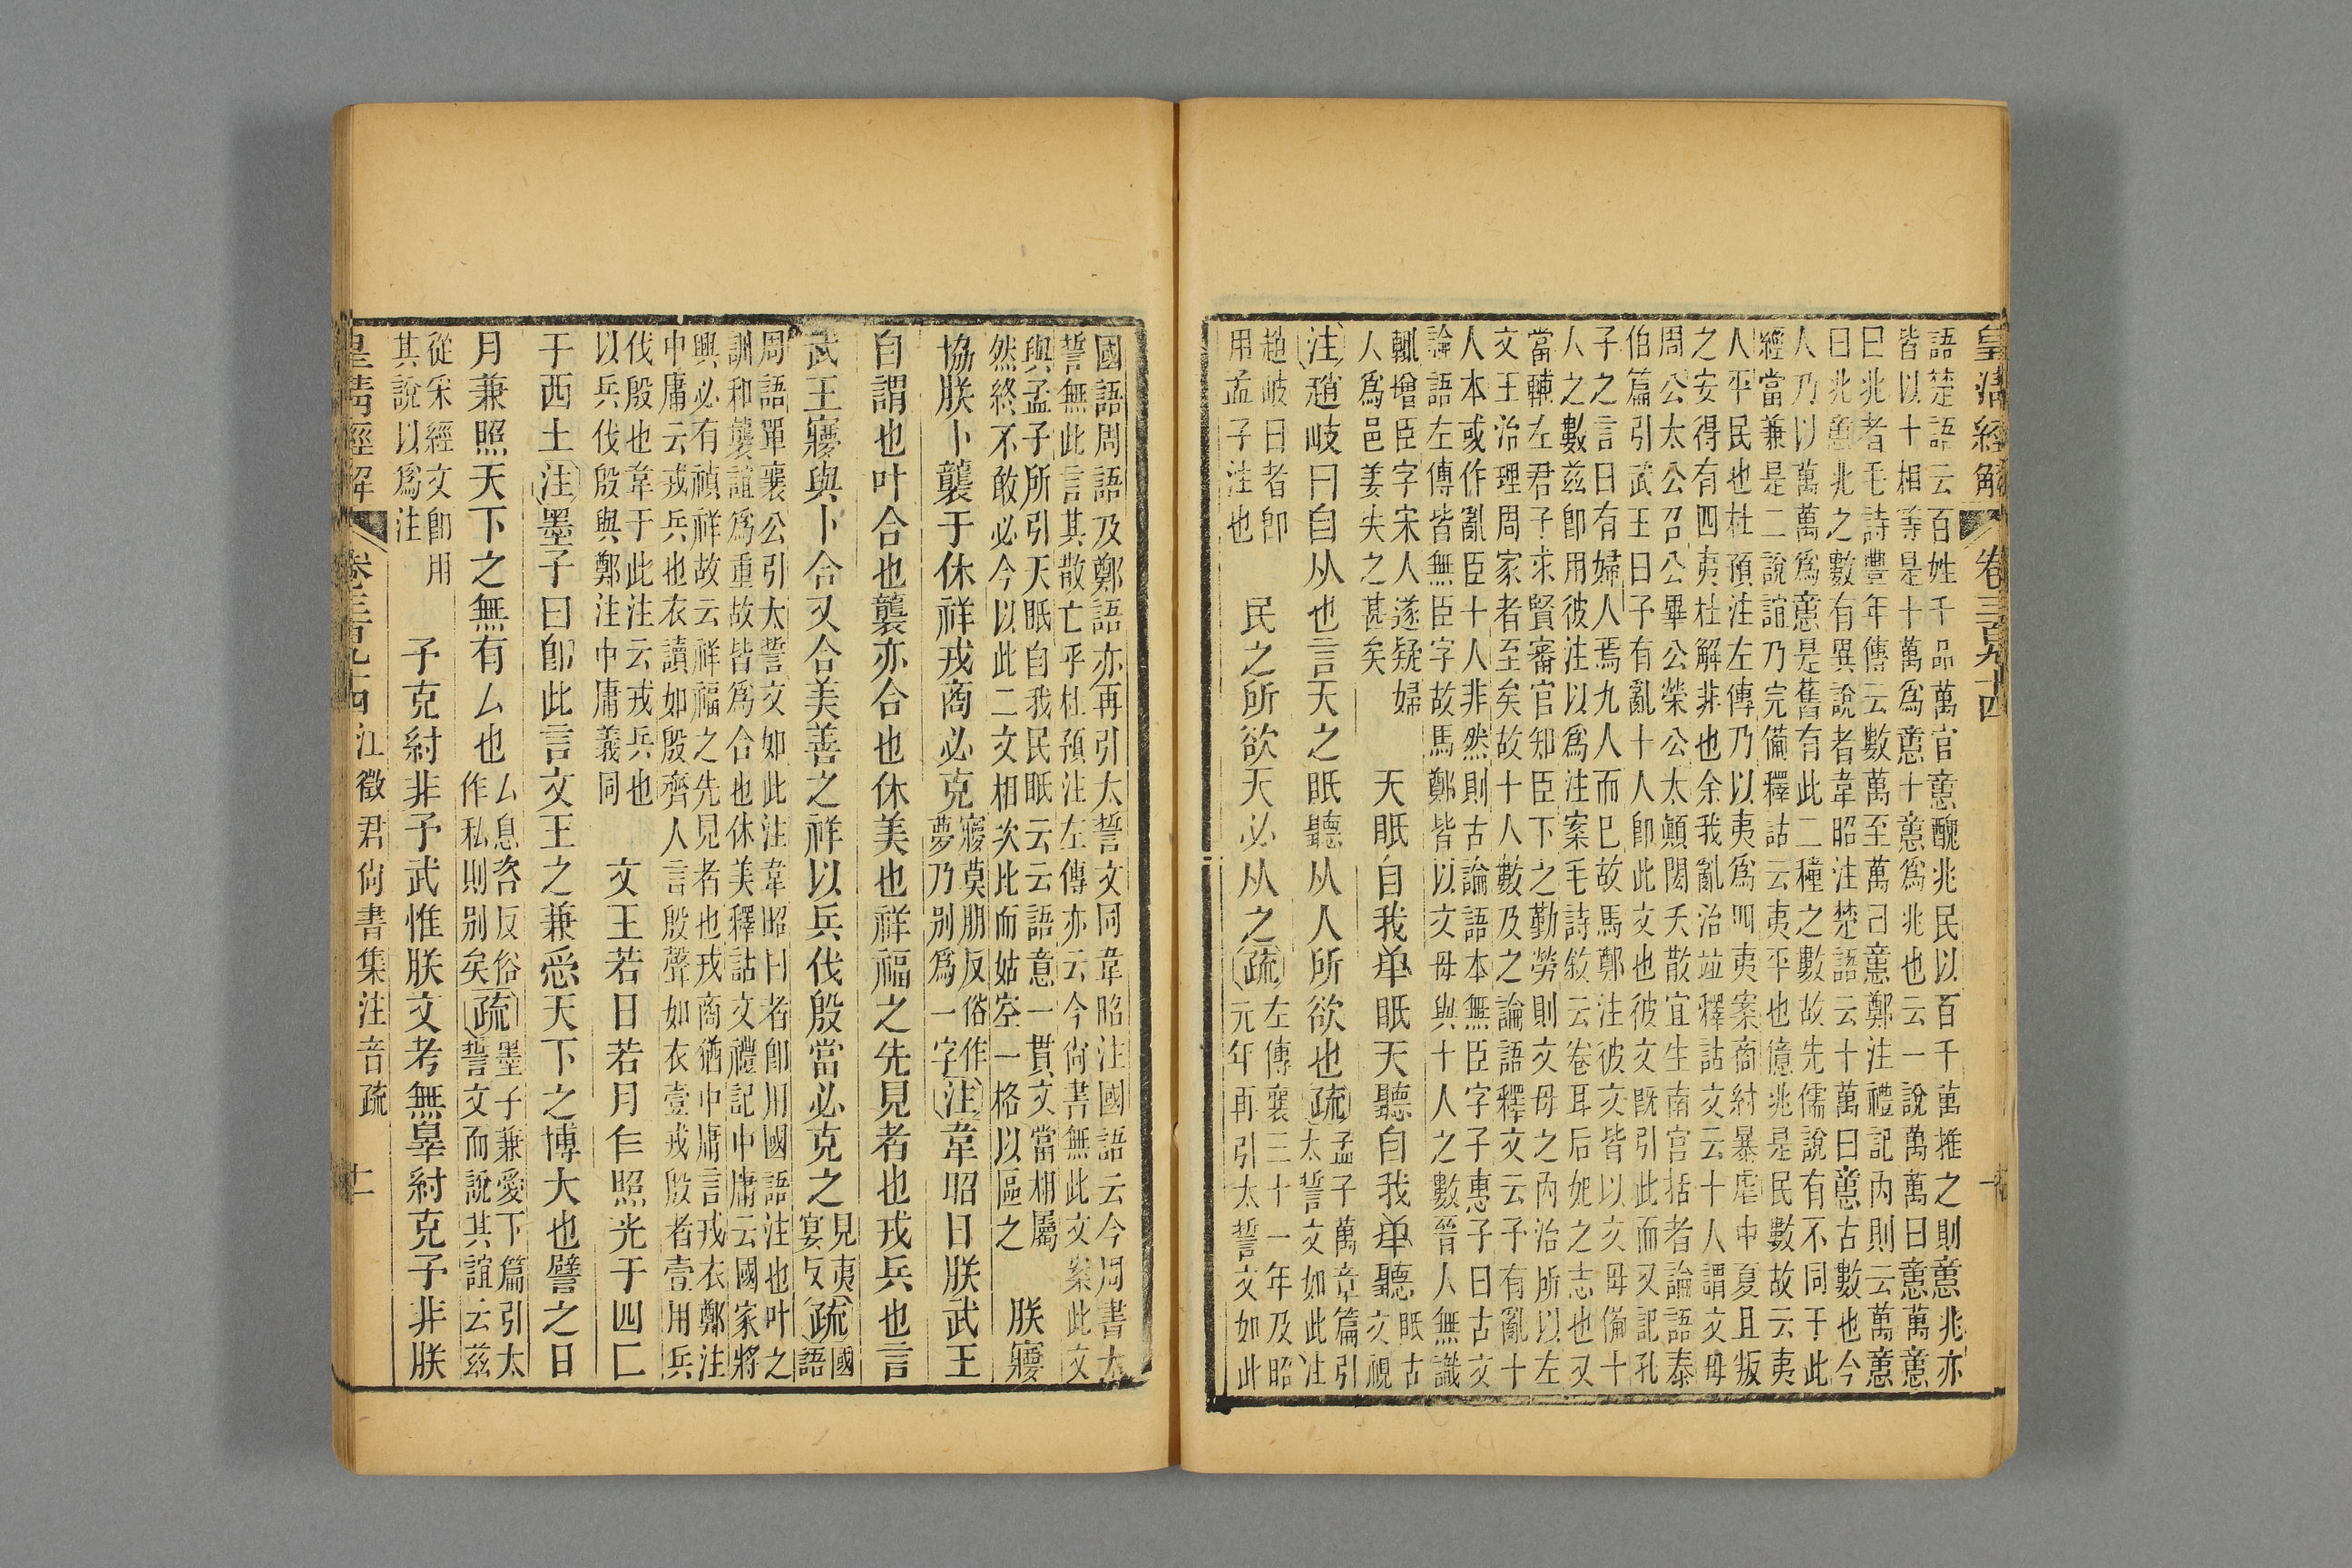 皇清經解 卷三百九十四
語楚語云百姓千品萬官意醜兆民以百千萬推之則意兆亦
皆以十相等是十萬爲意十意爲兆也云一說萬萬曰意萬意
曰兆者毛詩豐年傳云數萬至萬曰意鄭注禮記內則云萬意
曰兆意兆之數有異說者韋昭注楚語云十萬曰意古數也今
人乃以萬萬爲意是舊有此二種之數故先儒說有不同于此
經當兼是二說誼乃完備釋詁云夷平也億兆是民數故云夷
人平民也杜預注左傳乃以夷爲四夷案商紂暴虐中夏且叛
之安得有四夷杜解非也余我亂治竝釋詁文云十人謂文母
周公太公召公畢公榮公太顛閎夭散宜生南宮括者論語泰
伯篇引武王曰予有亂十人卽此文也彼文旣引此而又記孔
子之言曰有婦人焉九人而巳故馬鄭注彼文皆以文母備十
人之數茲卽用彼注以爲注案毛詩敘云卷耳后妃之志也又
當輔左君子求賢審官知臣下之勤勞則文母之內治所以左
文王治理周家者至矣故十人數及之論語釋文云予有亂十
人本或作亂臣十人非然則古論語本無臣字子惠子曰古文
論語左傳皆無臣字故馬鄭皆以文母與十人之數晉人無識
輒增臣字宋人遂疑婦
人爲邑姜失之甚矣
天眡自我単眡天聽自我単聽
眡古
文視
注趙岐曰自从也言天之眡聽从人所欲也疏
孟子萬章篇引
太誓文如此注
趙岐曰者卽
用孟子注也
民之所欲天必从之疏
左傳襄三十一年及昭
元年再引太誓文如此
國語周語及鄭語亦再引太誓文同韋昭注國語云今周書太
誓無此言其散亡乎杜預注左傳亦云今尙書無此文案此文
與孟子所引天眡自我民眡云云語意一貫文當相屬
然終不敢必今以此二文相次比而姑空一格以區之
朕㝱
協朕卜襲于休祥戎商必克
㝱莫朋反俗作
夢乃别爲一字
注韋昭曰朕武王
自謂也叶合也襲亦合也休美也祥福之先見者也戎兵也言
武王㝱與卜合又合美善之祥以兵伐殷當必克之
見夷
宴反
疏
國
語
周語單襄公引太誓文如此注韋昭曰者卽用國語注也叶之
訓和襲誼爲重故皆爲合也休美釋詁文禮記中庸云國家將
興必有禎祥故云祥福之先見者也戎商猶中庸言戎衣鄭注
中庸云戎兵也衣讀如殷齊人言殷聲如衣壹戎殷者壹用兵
伐殷也韋于此注云戎兵也
以兵伐殷與鄭注中庸義同
文王若日若月乍照光于四匚
于西土注墨子曰卽此言文王之兼㤅天下之博大也譬之日
月兼照天下之無有厶也
厶息咨反俗
作私則別矣
疏
墨子兼愛下篇引太
誓文而說其誼云茲
從宋經文卽用
其說以爲注
予克紂非予武惟朕文考無辠紂克予非朕
皇清經解 卷三百九十四 江徵君尙書集注音疏 十一